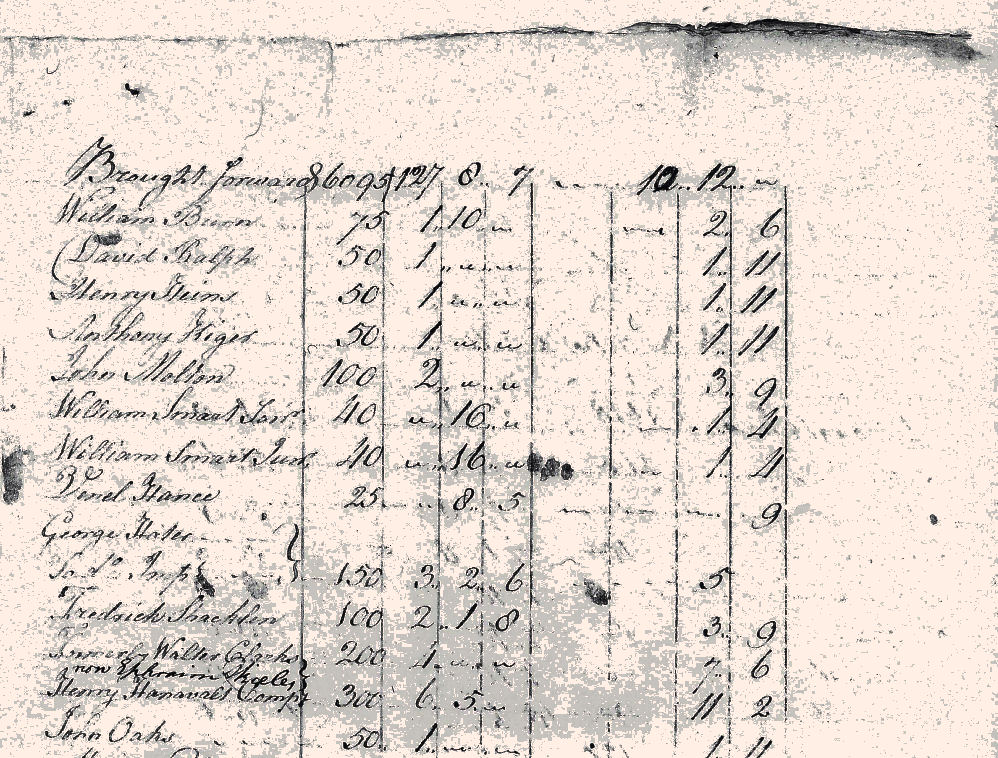 Brought forward 86095 127 8 7 " 10 12 "
William Bunn 75 1 10 " " 2 6
David Ralph 50 1 " " 1 11
Henry Heims 50 1 " " 1 11
Anthony Higer 50 1 " " 1 11
John Molton 100 2 " " 3 9
William Smart Senr 40 " 16 " 1 4
William Smart Junr 40 " 16 " 1 4
Hance 25 " 8 5 " " 9
George Hater
Imps 150 3 2 6 5
Fredrich Shacklen 100 2 1 8 3 9
Formerly Walter Clarks 200 4 " " 7 6
now Ephraim
Henry Hanavalt Comps 300 6 5 " 11 2
John Oaks 50 1 " " 1 11